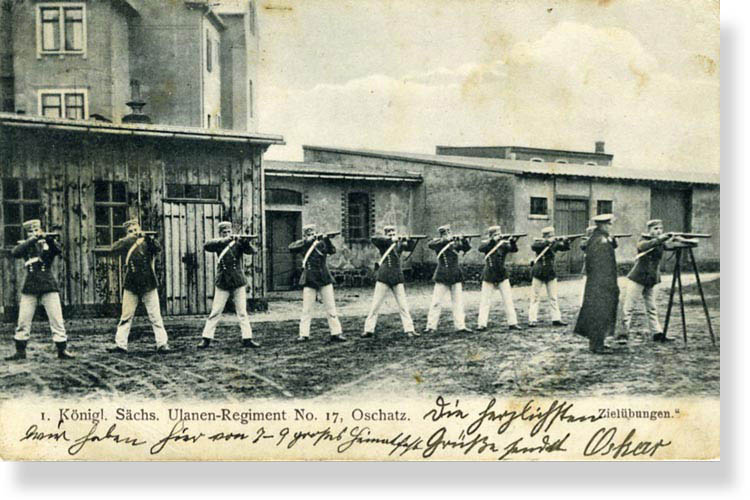 1. Königl. Sächs. Ulanen-Regiment No. 17, Oschatz.
Zielübungen.“
Die herzlichsten
wir haben hier von 7-9 großes Heimatsfest Grüße sendet Oskar